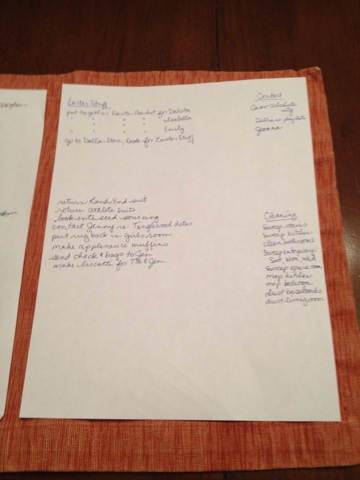 Easter Stuff
put together Easter Basket for Dakota
" " " " " Isabella
" " " " " Emily
go to Dollar Store, look for Easter Stuff
Contact
mtg
playdate
return Lands End suit
return athleta suits
look into seed sourcing
contact Jenny re: Tanglewood dates
put rug back in girls room
make applesauce muffins
send check & bags to Jen
make biscotti for T & Jen
Cleaning
sweep stairs
sweep kitchen
clean bathrooms
sweep entryway
sweep spare room
mop kitchen
mop bathroom
dust baseboards
dust living room